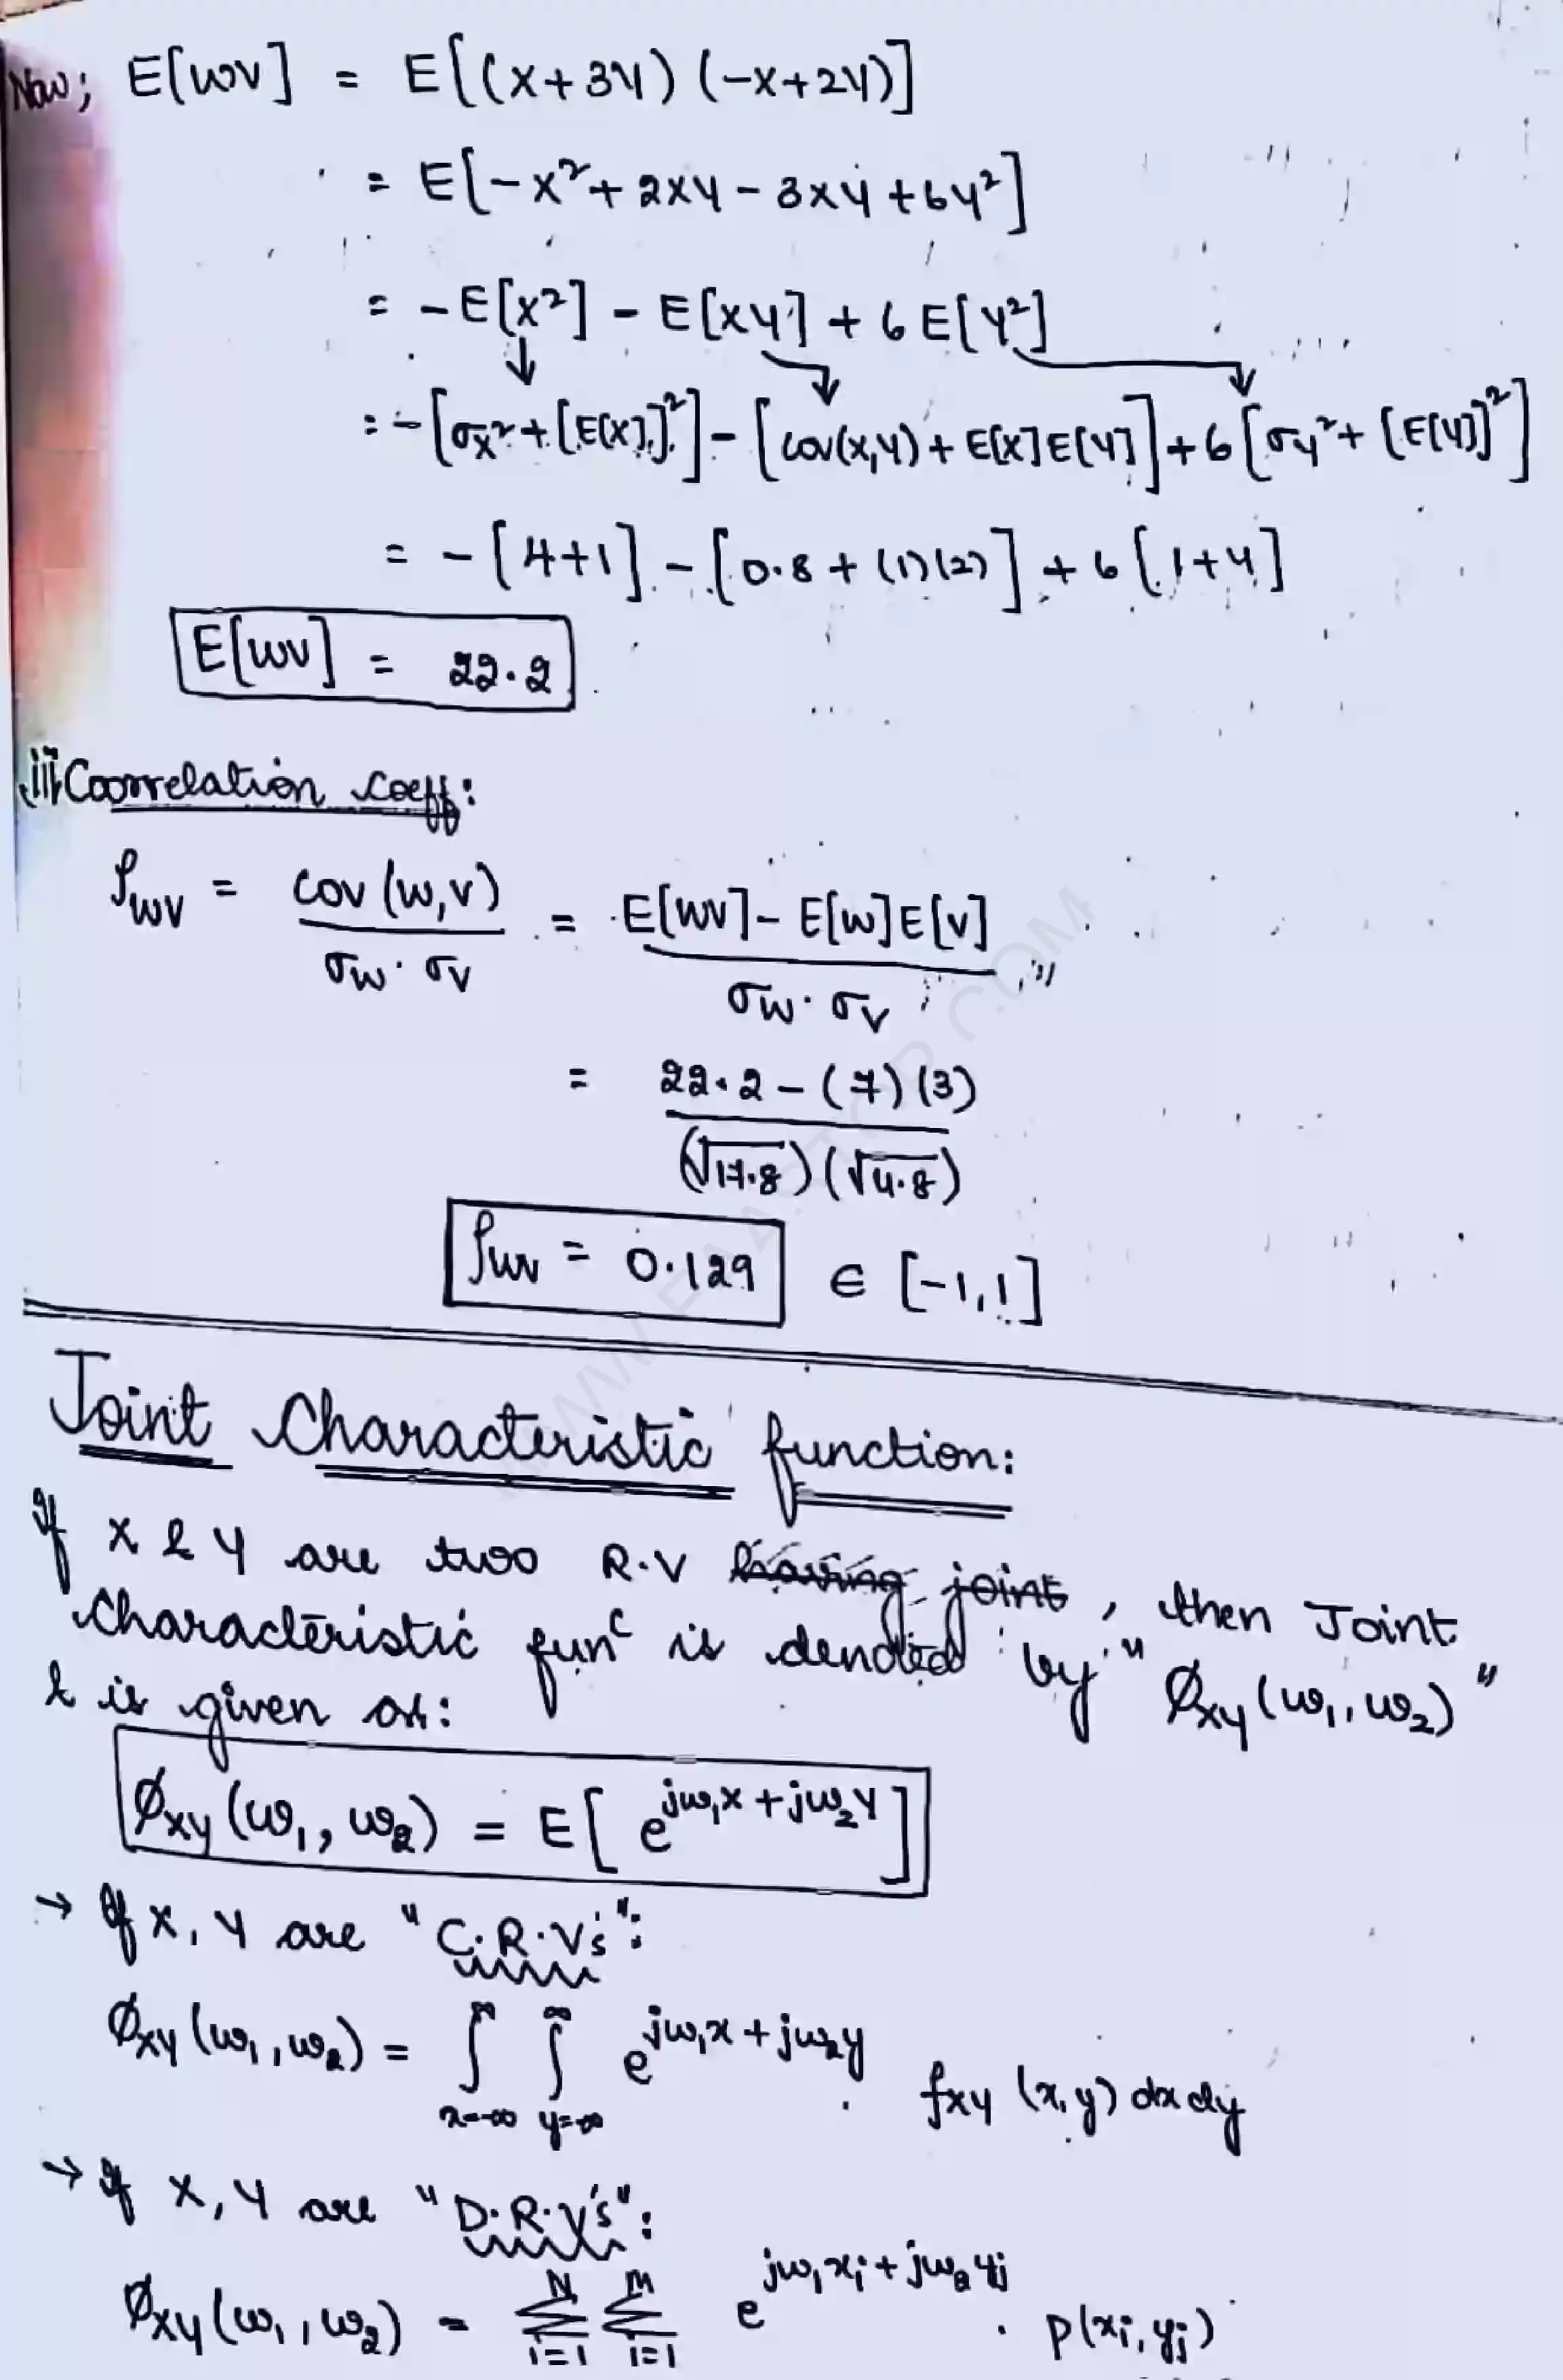 Now; E[wv] = E[(x+3y) (-x+2y)]
= E[-x²+2xy-3xy+6y²]
= -E[x²] - E[xy] + 6E[y²]
= -[σx²+[E(x)]²] - [cov(x,y) + E[x]E[y]] + 6[σy²+ [E(y)]²]
= -[4+1] - [0.8+(1)(2)] + 6[1+4]
E[wv] = 22.2
iii) Coorrelation coeff:
ρwv = cov(w,v) / σw·σv = E[wv]-E[w]E[v] / σw·σv
= 22.2-(7)(3) / (√17.8)(√4.8)
ρwv = 0.129 ∈ [-1,1]
Joint Characteristic function:
If x & y are two R.V having joint, then Joint
Characteristic funᶜ is denoted by "Øxy(ω₁,ω₂)"
& is given as:
Øxy(ω₁,ω₂) = E[e^{jω₁x+jω₂y}]
→ If x,y are "C.R.V's":
Øxy(ω₁,ω₂) = ∫_{x=-∞}^{∞} ∫_{y=-∞}^{∞} e^{jω₁x+jω₂y} . fxy (x,y) dx dy
→ If x,y are "D.R.V's":
Øxy(ω₁,ω₂) = Σ_{i=1}^{N} Σ_{i=1}^{M} e^{jω₁xi+jω₂yj} . p(xi,yj)